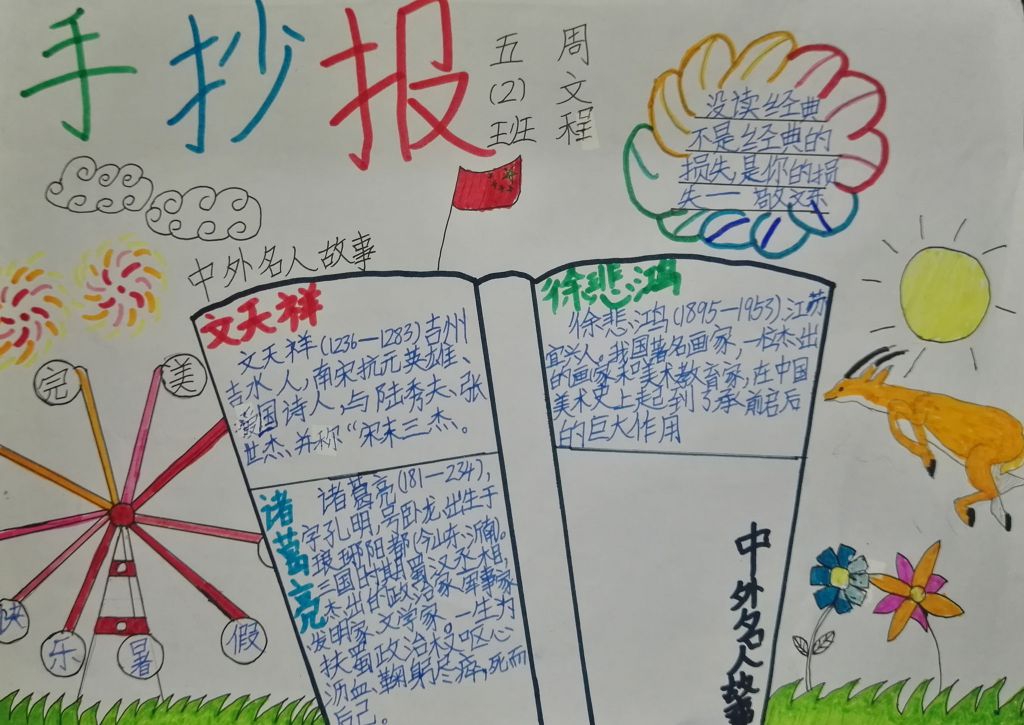 手抄报
五(2)班
周文程
没读经典
不是经典的
损失,是你的损
失——
中外名人故事
文天祥
文天祥(1236—1283)吉州
吉水人,南宋抗元英雄、
爱国诗人,与陆秀夫、张
世杰,并称“宋末三杰。
诸葛亮
诸葛亮(181—234),
字孔明,号卧龙,出生于
琅琊阳都(今山东沂南)。
三国时期蜀汉丞相
杰出的政治家、军事家
发明家、文学家。一生为
扶蜀政治术又呕心
沥血、鞠躬尽瘁,死而
后已。
徐悲鸿
徐悲鸿(1895—1953),江苏
宜兴人。我国著名画家,一位杰出
的画家和美术教育家,在中国
美术史上起到了承前启后
的巨大作用
中外名人故事
完
美
快
乐
暑
假